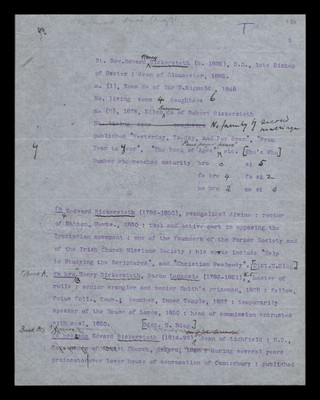 T
Rt. Rev. Edward Henry Bickersteth (b. 1825), D.D., late Bishop
of Exeter : Dean of Gloucester, 1885.
m. [1], Rosa dau of Sir S. Bignold, 1848
No. living sons 4 daughters 6
m. [2], 1876, dau of Robert Bickersteth
No family by second marriage
published "Yesterday, To-day, and For Ever", "From
Year to Year", "The Rock of Ages", etc. [Who's Who]
Number who reached maturity bro 0 si 5
fa bro 4 fa si 2
me bro 2 me si
fa Edward Bickersteth (1786-1850), evangelical divine : rector
of Watton, Herts., 1830 : took active part in opposing the
Tractarian movement : one of the founders of the Parker Society and
of the Irish Church Missions Society : his works include "Help
to Studying the Scriptures", and "Christian Psalmody". [Dict. N. Biog.]
fa bro Henry Bickersteth, Baron Langdale (1783-1851), master of
rolls : senior wrangler and senior Smith's prizeman, 1808 : fellow,
Caius Coll., Camb. : bencher, Inner Temple, 1827 : temporarily
speaker of the House of Lords, 1850 : head of commission entrusted
with seal, 1850. [Dict. N. Biog.]
fa bro son Edward Bickersteth (1814-92), dean of Lichfield : D.D.,
Christ Church, Oxford, : during several years
prolocutor over lower house of convocation of Canterbury : published